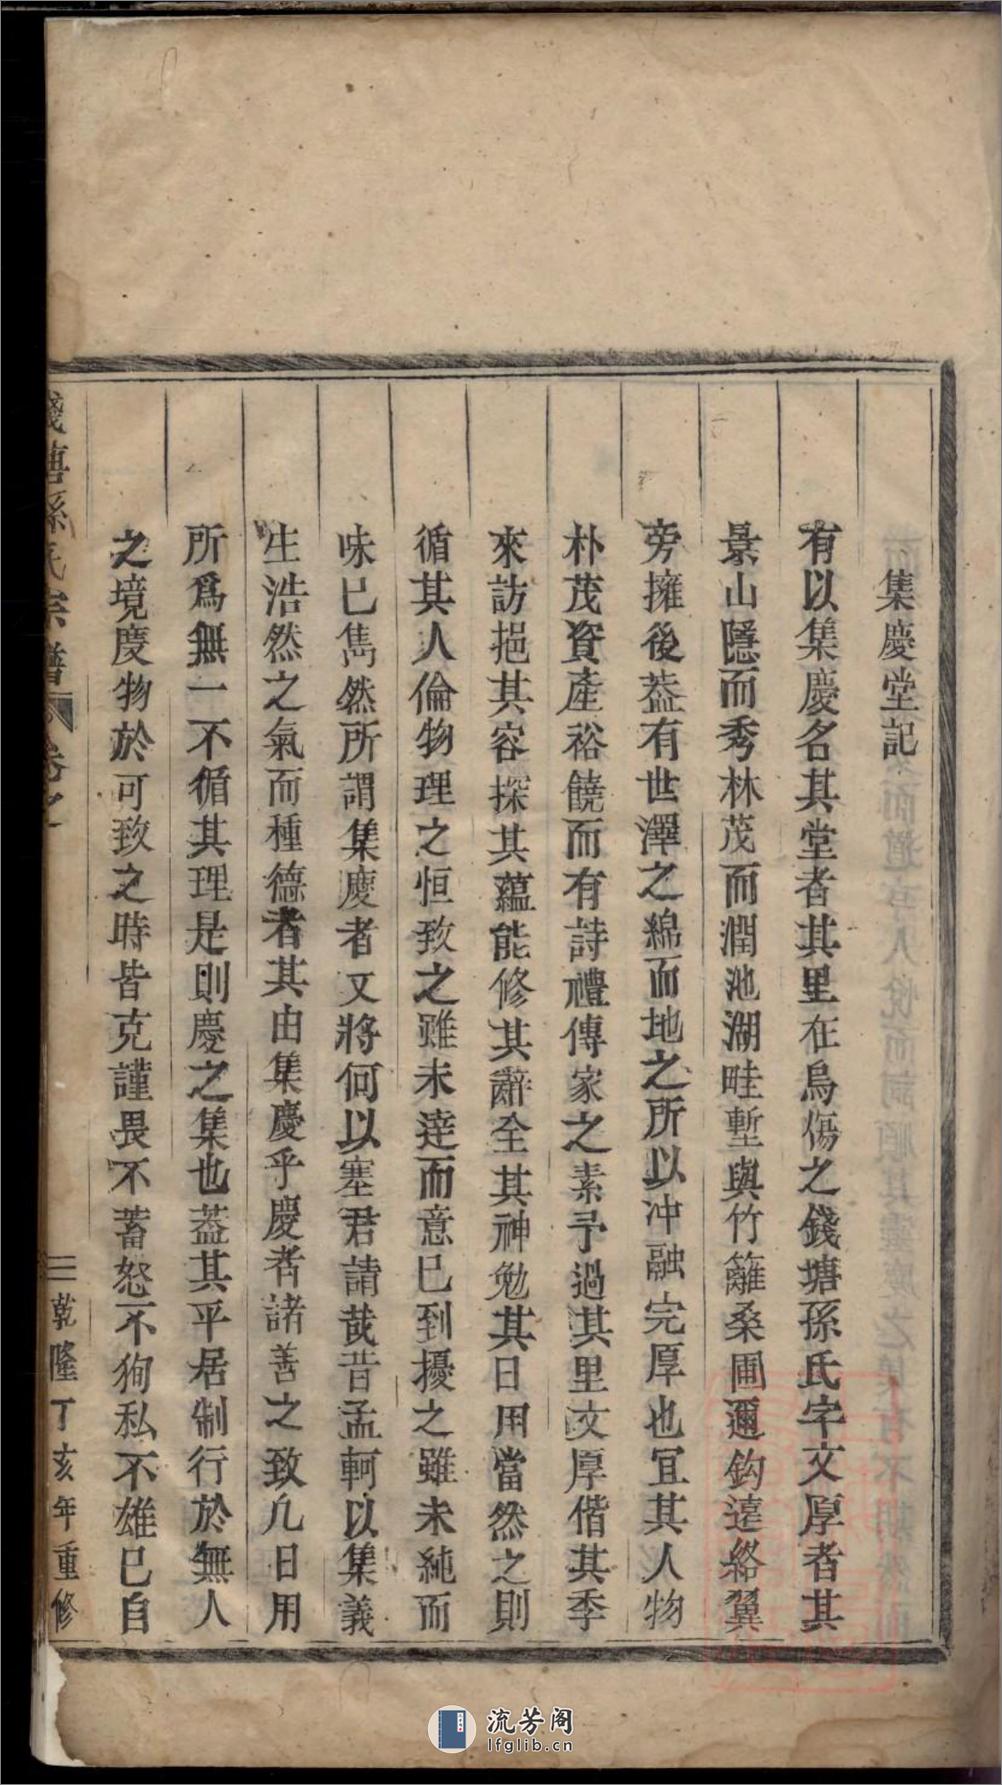 集慶堂記
有以集慶名其堂者其里在烏傷之錢塘孫氏字文厚者其
景山隱而秀林茂而潤池湖畦塹與竹籬桑圃邇鈎遠絡翼
旁擁後葢有世澤之綿而地之所以冲融完厚也宜其人物
朴茂資產裕饒而有詩禮傳家之素予過其里文厚偕其季
來訪挹其容探其蘊能修其辭全其神勉其日用當然之則
循其人倫物理之恒致之雖未達而意已到擾之雖未純而
味已雋然所謂集慶者又將何以塞君請哉昔孟軻以集義
生浩然之氣而種德者其由集慶乎慶者諸善之致凢日用
所爲無一不循其理是則慶之集也葢其平居制行於無人
之境度物於可致之時皆克謹畏不蓄怒不狥私不雄已自
錢塘孫氏宗譜 卷之一
三 乾隆丁亥年重修
流芳阁
lfglib.cn